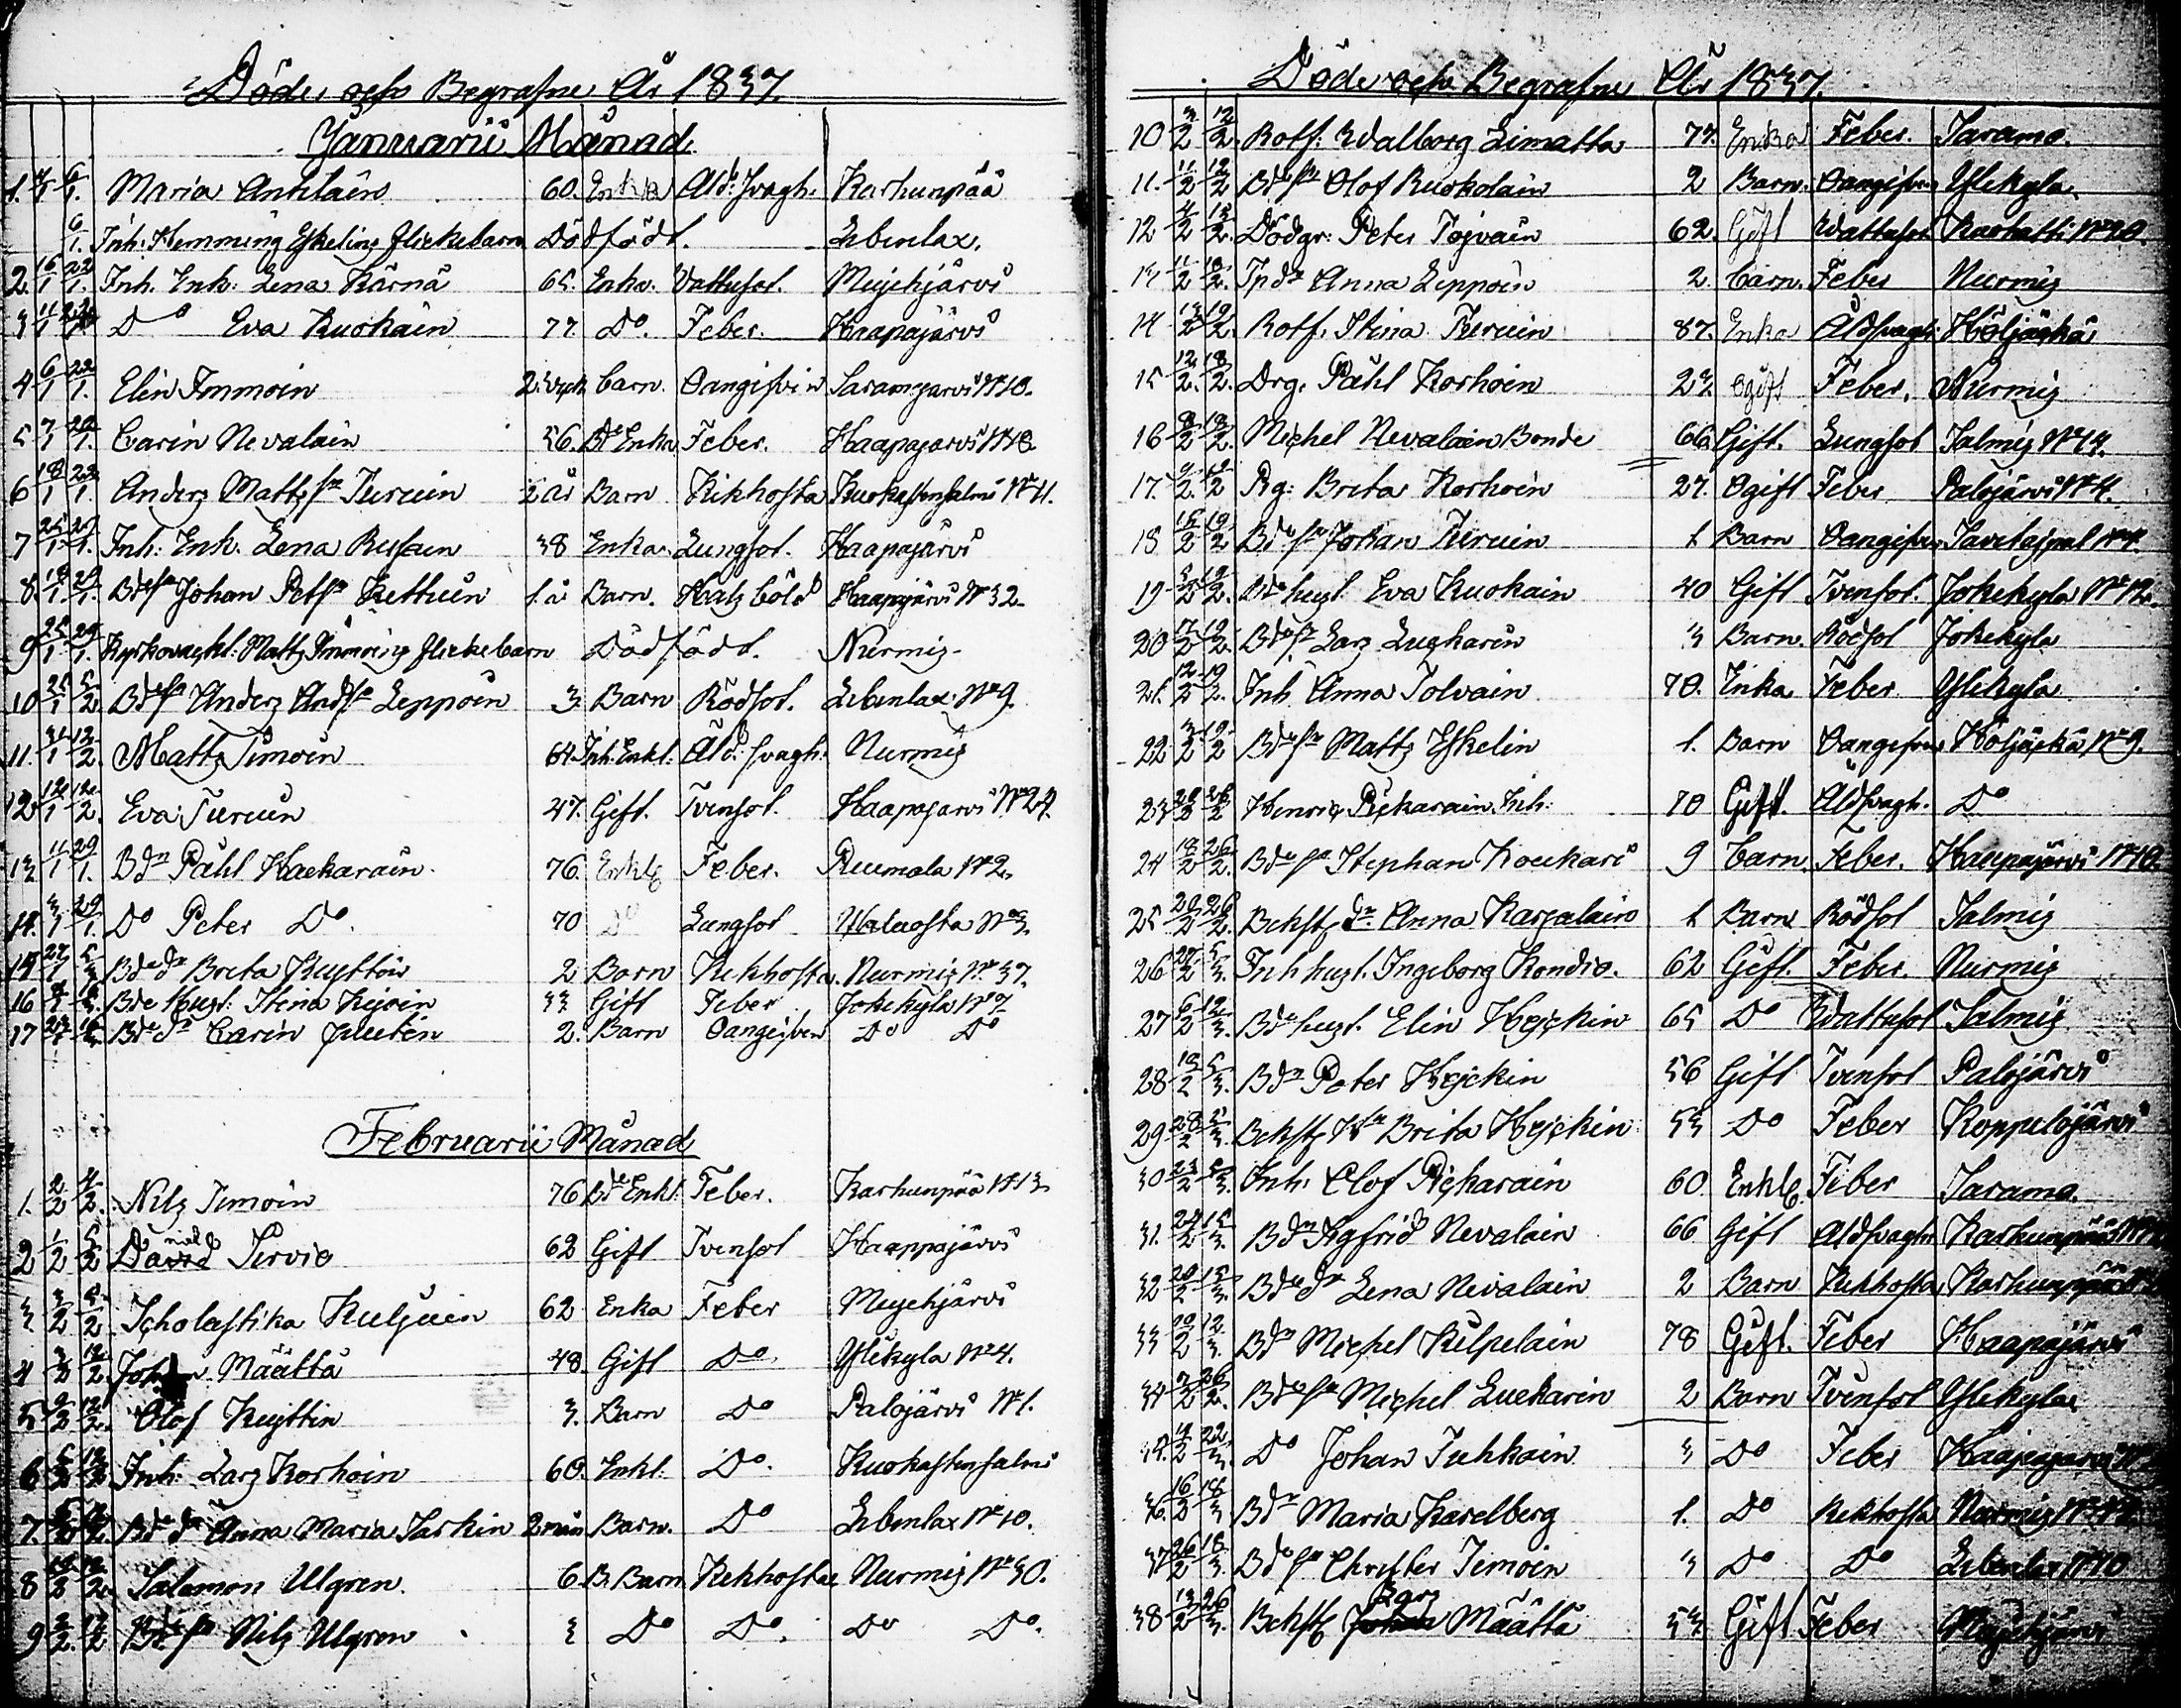 Döde och Begrafne År 1837.
Januarii Månad
1. 6/1. Maria Antilain 60. Enka Ald: svagh. Karhunpää
6/1. Inh: Hemming Eskelins flickebarn Dödfödt. Libenlax.
2. 16/1 22/1. Inh. Enk: Lena Kärnä 65. Enka. Vattusot. Mujehjärvi
3 11/1 Do Eva Kuokain 77. Do. Feber. Haapajärvi
4 6/1 22/1. Elin Immoin 2. barn. Oangifven Saramojärvi No 10.
5 7/1 22/1. Carin Nevalain 56. Bde Enka Feber. Haapajärvi No 18
6 18/1 22/1. Anders Matts sn Turuin 2 år Barn Kikhosta Kuokastensalmi No 11.
7 25/1 29/1. Inh: Enk. Lena Russain 38 Enka. Lungsot. Haapajärvi
8. 18/1. 29/1. Bdesn Johan Petsn Kettuin 1. å Barn. Halsböld Haapajärvi No 32.
9 25/1. 29/1. Kyrkovaykt: Matts Immoins flickebarn Dödfödt. Nurmis
10 25/1 5/2. Bdesn Anders Andsn Leppoin 3 Barn Rödsot. Libenlax No 9.
11. 31/1 12/2. Matts Timoin 64. Inh. Enkl: Åld: svagh: Nurmis
12 12/1 12/2. Eva Turuin 47. Gift. Tvinsot. Haapajärvi No 24.
13 11/1 29/1. Bdn Påhl Hackarain. 76 Enkl Feber. Puumala No 2.
14. 3/1 29/1. Do Peter Do. 70 Do Lungsot No 3.
15 27/1 5/3 Bde dr Brita Kyttöin 2 Barn Kikhosta. Nurmis No 37.
16 Bde Hust: Stina Kejoin 33 Gift Feber Jokikyla No 7
17 Bde dr Carin Juutin 2. Barn Oangifven Do Do
Februarii Månad
1. 2/2 4/2. Nils Timoin 76 Bde Enkl. Feber. Karhunpää No 13
2 1/2 5/2 David Tervo 62 Gift Tvinsot Haappajärvi
3. 3/2 5/2 Scholastika Kuljuin 62 Enka Feber Mujehjärvi
4 3/2 12/2 Johan Määttä 48. Gift Do Ylikyla No 4.
5 9/2 12/2. Olof Kyttin 3. Barn Do Palojärvi No 1.
6 6/2 12/2 Inh: Lars Korhoin 60. Enkl. Do. Kuokastensalmi
7. Bde dr Anna Maria Sarkin 2 mån Barn. Do Libenlax No 10.
8 12/2. Salomon Ulgren. 6. B. Barn Kikhosta Nurmis No 30.
9 12/2 Bdesn Nils Ulgren 3 Do Do. Do Do.
Döde och Begrafne År 1837.
10 3/2 12/2. Rotf: Walborg Limatta 77. Enka Feber. Saramo.
11. 11/2 12/2 Bdesn Olof Ruokolain 2 Barn. Oangifven Ylikyla.
12 4/2 12/2. Dödgr: Peter Tojvain 62. Gift Wattusot Karhatti No 20.
13 11/2 18/2. Tpdr Anna Leppoin 2. barn. Feber Nurmis
14 13/2 19/2. Rotf. Stina Turuin 87. Enka Åldsvagh: Höljäckä
15 12/2. 18/2. Drg. Påhl Korhoin 23. Ogift Feber. Nurmis
16 8/2 18/2. Michel Nevalain Bonde 66. Gift. Lungsot Salmis No 14.
17. 9/2. 19/2 Pig: Brita Korhoin 27. Ogift Feber Palojärvi No 4.
18 15/2 19/2 Bdesn Johan Turuin 1 Barn Oangifven Savikajpal No 4.
19 9/2 19/2. Bde hust. Eva Kuokain 40 Gift Tvinsot. Jokikyla No 12.
20 7/2 19/2. Bdesn Lars Luckarin 3 Barn. Rödsot Jokikyla
21. 12/2 19/2. Inh Anna Tolvain 70. Enka Feber Ylikyla
22 3/2 19/2 Bdesn Matts Eskelin 1. Barn Oangifven Höljäckä No 9.
23 20/2 26/2 Henric Pickarain Inh: 70 Gift. Åldsvagh. Do
24 18/2 26/2. Bdesn Stephan Koukari 9 barn. Feber. Haapajärvi No 10.
25 20/2 26/2. Bckst dr Anna Karjalain 1 Barn Rödsot Salmis
26 27/2 5/3. Inh hust. Ingeborg Kondia. 62 Gift. Feber. Nurmis
27 6/2 12/3. Bde hust. Elin Hejckin 65 Do Wattusot Salmis
28 19/2 5/3. Bdn Peter Hejckin 56 Gift Tvinsot Palojärvi
29 28/2 5/3. Bckst Brita Hejckin 53 Do Feber Koppelojärvi
30 23/2 5/3. Inh. Olof Pickarain 60. Enkl Feber Saramo.
31. 24/2 15/3. Bdn Sigfrid Nevalain 66 Gift Åldsvagh Karhunpää
32 20/2 15/3. Bde dr Lena Nevalain 2 Barn Kikhosta Karhunpää
33 12/3. Bdn Michel Kilpelain 78 Gift. Feber Haapajärvi
34 9/2 26/2. Bdesn Michel Luckarin 2 Barn Tvinsot Ylikyla
35. 22/3. Do Johan Tuhkain 3 Do Feber Haapajärvi
36. 16/2 18/3 Bdn Maria Karelberg 1. Do Kikhosta Nurmis
37 26/2 18/3. Bdesn Christer Timoin 3 Do Do Libenlax No 10
38 13/2 26/3. Bckst Johan Lars Määttä 53. Gift Feber Mujehjärvi